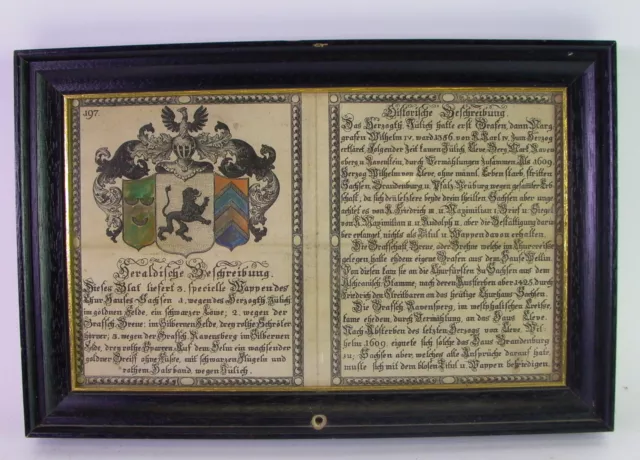 197.
Heraldische Beschreibung.
Dieses Blat liefert 3. specielle Wappen des
Chur Hauses Sachsen 1. wegen des Herzogth. Jülich
im goldnen Felde, ein schwarzer Löwe; 2. wegen der
Grafsch. Brene, im silbernen Felde, drey rothe Schröter
hörner; 3. wegen der Grafsch. Ravensberg im silbernen
Felde, drey rothe Sparren. Auf dem Helm ein wachsender
goldner Greiff ohne Füsse, mit schwarzen Flügeln und
rothem Halsband, wegen Jülich.
Historische Beschreibung.
Das Herzogth. Jülich hatte erst Grafen, dann Marg
grafen Wilhelm IV. ward 1356. von K. Karl IV. zum Herzog
erklärt. Folgender Zeit kamen Jülich, Cleve, Berg, Mark, Raven
berg u. Ravenstein, durch Vermählungen zusammen. Als 1609.
Herzog Wilhelm von Cleve, ohne männl. Erben starb, stritten
Sachsen, Brandenburg u. Pfalz-Neuburg wegen gesamter Erb
schaft, da sich den letztere beyde drein theilten, Sachsen aber unge
achtet es von K. Friedrich III. u. Maximilian I. Brief u. Siegel
von K. Maximilian II. u. Rudolph II. aber die Bestättigung darü
ber erlanget, nichts als Titul u. Wappen davon erhalten.
Die Grafschaft Brene, oder Brehne welche im Churcreisse
gelegen hatte ehedem eigene Grafen aus dem Hause Wettin.
Von diesen kam sie an die Churfürsten zu Sachsen aus dem
Ascheranisch. Stamme, nach deren Aussterben aber 1423. durch
Friedrich den Streitbaren an das heutige Churhaus Sachsen.
Die Grafsch. Ravensberg, im westphälischen Creisse,
kame ehedem, durch Vermählung, an das Haus Cleve.
Nach Absterben des letzten Herzogs von Cleve, Wil
helm 1609. eignete sich solche das Haus Brandenburg
zu, Sachsen aber, welches alte Ansprüche darauf hatte,
muste sich mit dem blosen Titul u. Wappen befriedigen.